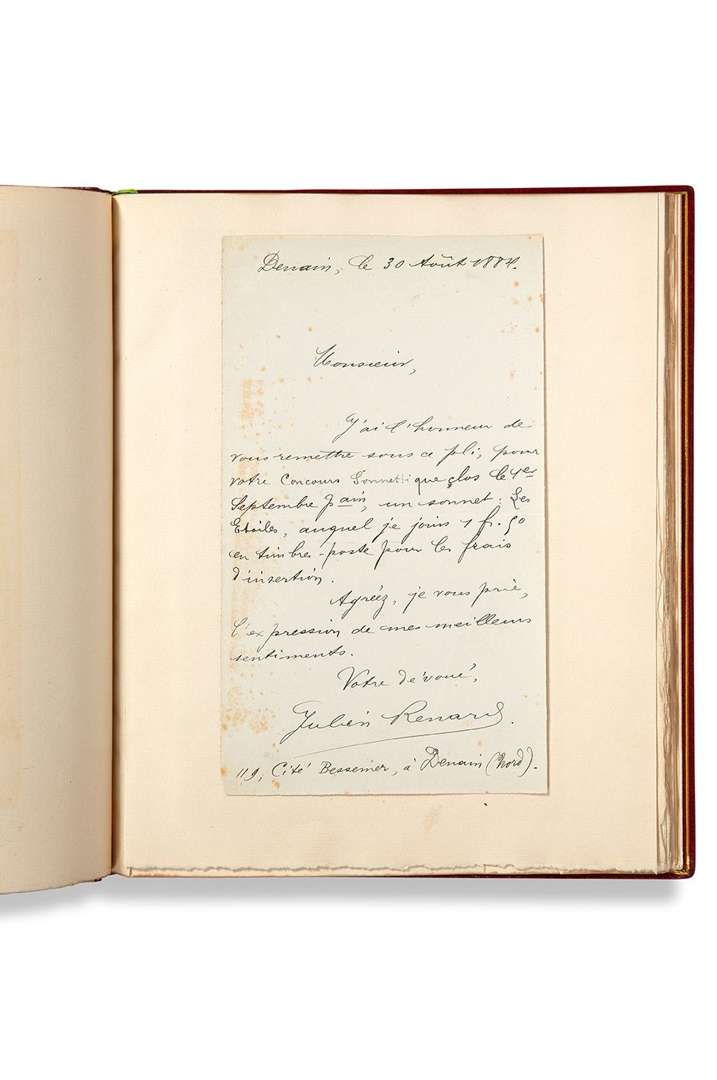 Denain, le 30 Août 1884.
Monsieur,
J'ai l'honneur de
vous remettre sous ce pli, pour
votre Concours Sonnettique clos le 1er
Septembre pain, un sonnet: Les
Etoiles, auquel je joins 1 fr. 50
en timbres-poste pour les frais
d'insertion.
Agréez, je vous prie,
l'expression de mes meilleurs
sentiments.
Votre dévoué,
Julien Renard.
119, Cité Bessemer, à Denain (Nord).